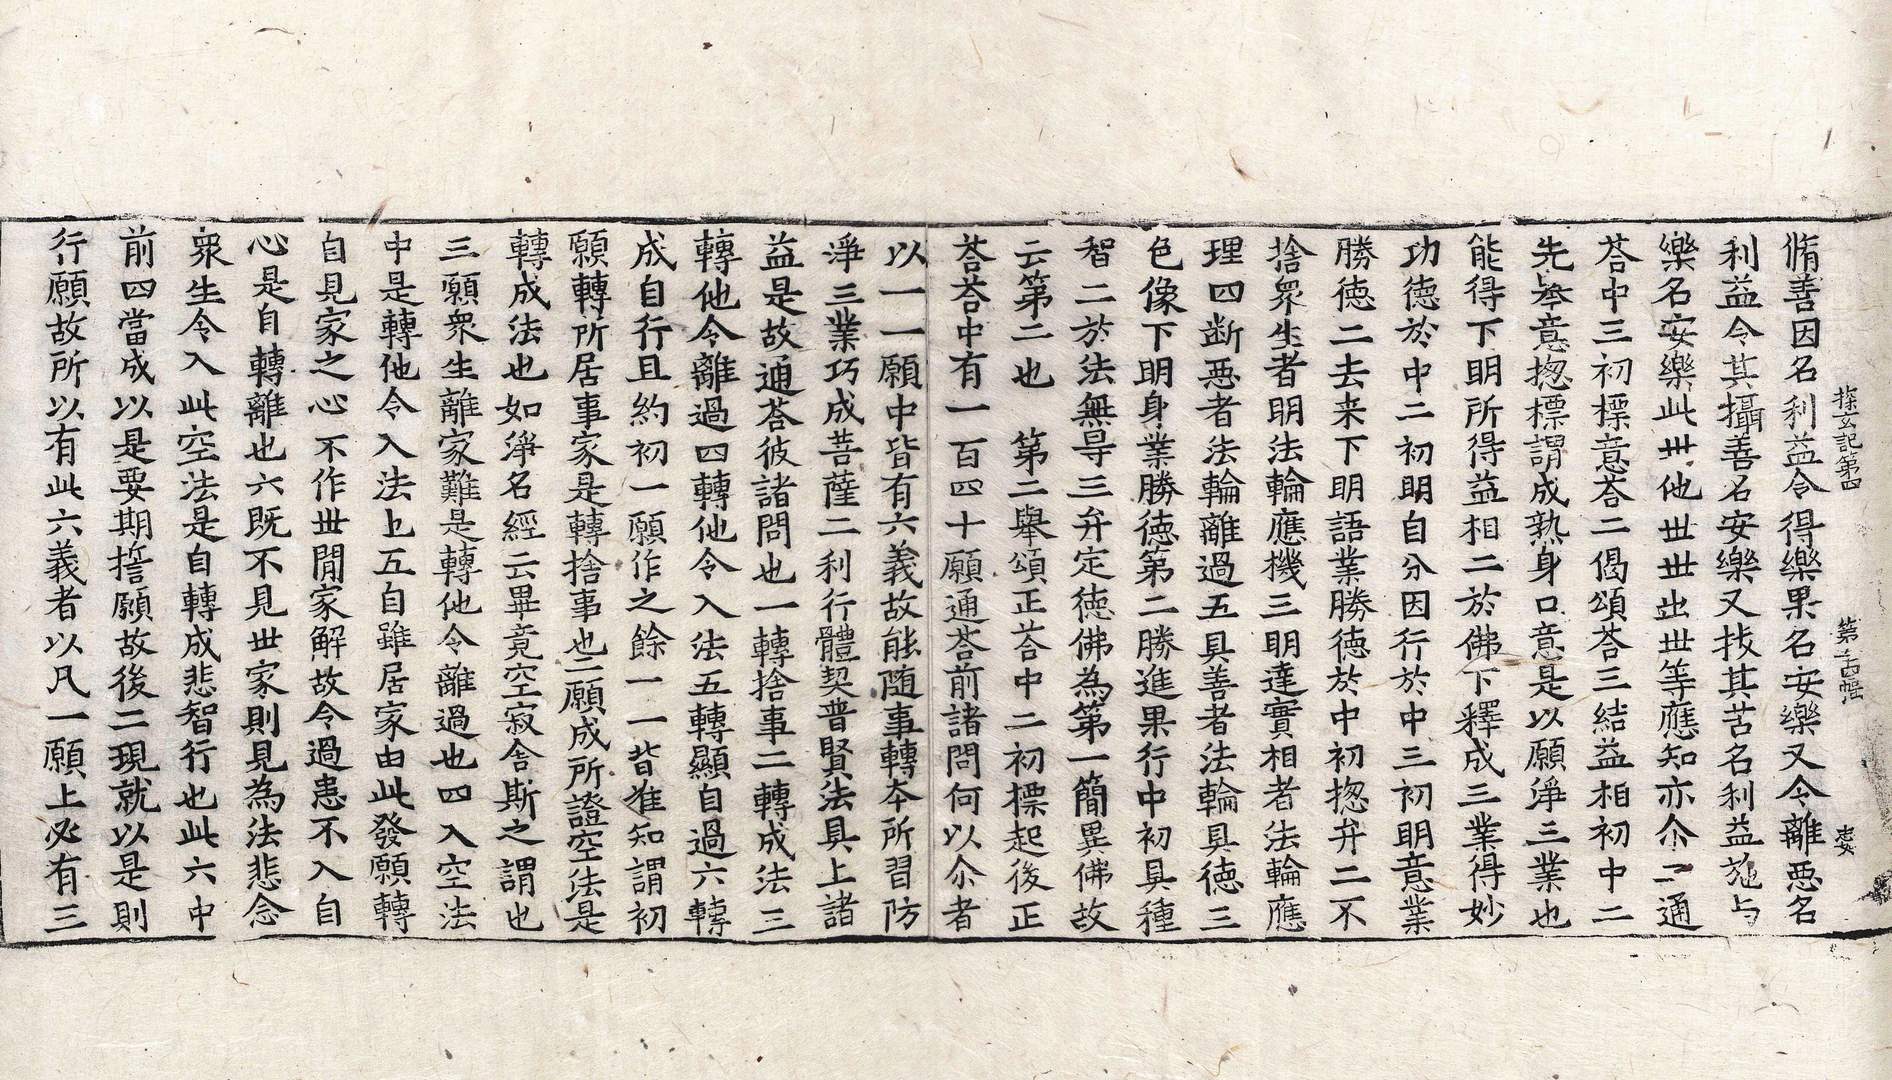 探玄記第四　第十四幅　㝹
脩善因名利益令得樂果名安樂又令離惡名
利益令其攝善名安樂又拔其苦名利益施与
樂名安樂此丗他丗丗出丗等應知亦尒二通
荅中三初標意荅二偈頌荅三結益相初中二
先牟意揔標謂成熟身口意是以願淨三業也
能得下明所得益相二於佛下釋成三業得妙
功德於中二初明自分因行於中三初明意業
勝德二去来下明語業勝德於中初揔弁二不
捨衆生者明法輪應機三明達實相者法輪應
理四断惡者法輪離過五具善者法輪具德三
色像下明身業勝德第二勝進果行中初具種
智二於法無导三弁定德佛為第一簡異佛故
云第二也　第二舉頌正荅中二初標起後正
荅荅中有一百四十願通荅前諸問何以尒者
以一一願中皆有六義故能随事轉夲所習防
淨三業巧成菩薩二利行體契普賢法具上諸
益是故通荅彼諸問也一轉捨事二轉成法三
轉他令離過四轉他令入法五轉顯自過六轉
成自行且約初一願作之餘一一皆准知謂初
願轉所居事家是轉捨事也二願成所證空法是
轉成法也如淨名經云畢竟空寂舍斯之謂也
三願衆生離家難是轉他令離過也四入空法
中是轉他令入法上五自雖居家由此發願轉
自見家之心不作丗閒家解故令過患不入自
心是自轉離也六既不見丗家則見為法悲念
衆生令入此空法是自轉成悲智行也此六中
前四當成以是要期誓願故後二現就以是則
行願故所以有此六義者以凡一願上必有三